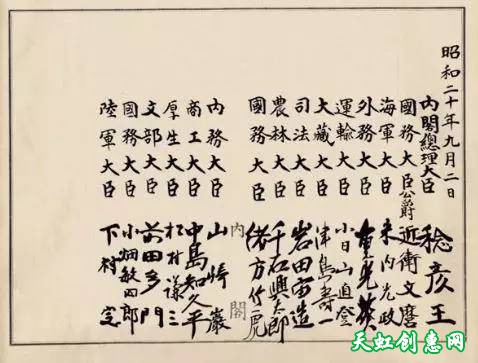 昭和二十年九月二日
內閣總理大臣 稔彥王
國務大臣公爵 近衛文麿
海軍大臣 米內光政
外務大臣 重光葵
運輸大臣 小日山直登
大藏大臣 津島壽一
司法大臣 岩田宙造
農林大臣 千石興太郎
國務大臣 緒方竹虎
內閣
內務大臣 山崎巖
商工大臣 中島知久平
厚生大臣 松村謙三
文部大臣 前田多門
國務大臣 小畑敏四郎
陸軍大臣 下村定
天虹创惠网